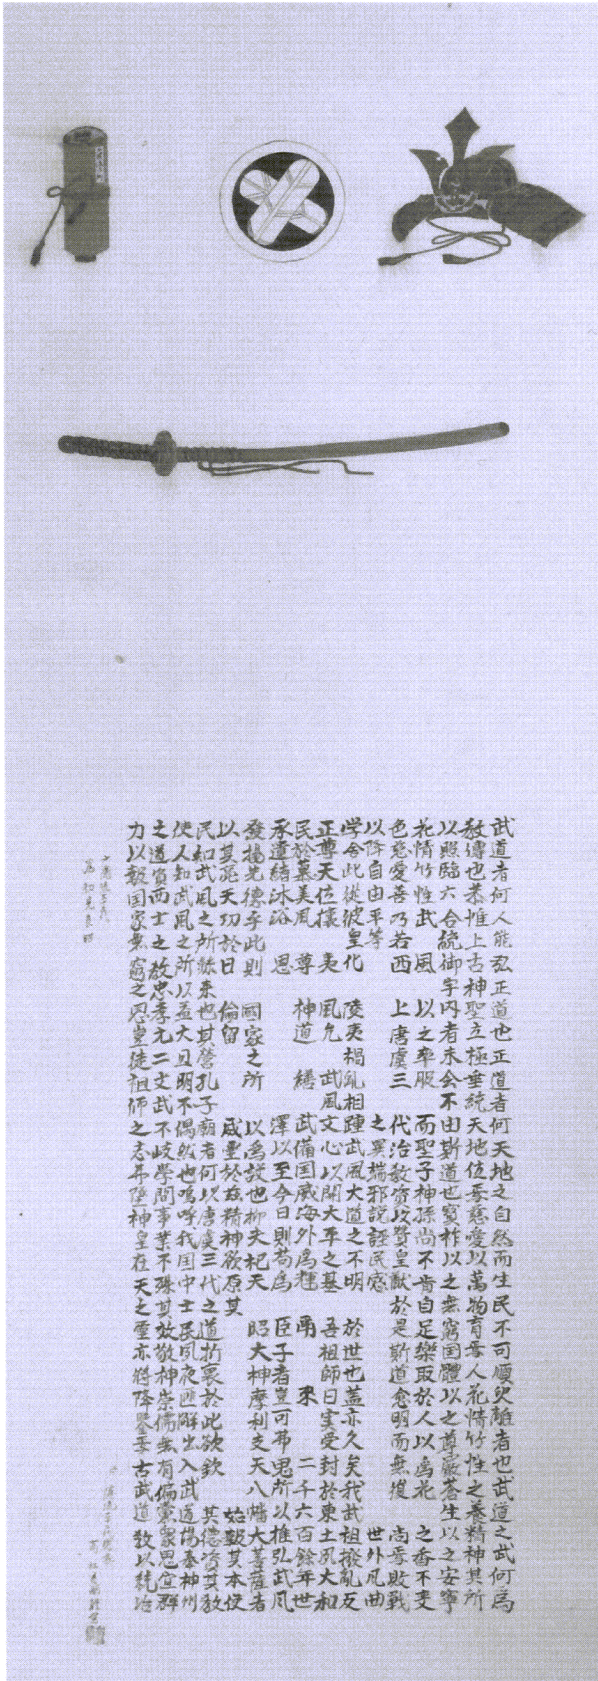 武道者何人能弘正道也正道者何天地之自然而生民不可須臾離者也武道之武何為
教傳也恭惟上古神聖立極垂統天地位焉慈愛以萬物育焉人花情竹性之養精神其所
以照臨六合統御宇内者未会不由斯道也寳祚以之無窮国體以之尊嚴蒼生以之安寧
花情竹性武風 以之率服 而聖子神孫尚不肯自足樂取於人以為花 之香不变
色慈愛善乃若西 上唐虞三 代治教資以賛皇猷於是斯道愈明而無復 尚焉敗戦
以降自由平等 之異端邪説誣民惑 世外凡曲
学舎此從彼皇化 陵夷禍乱相踵武風大道之不明 於世也蓋亦久矣我武祖撥乱反
正尊天位攘 夷 風允 武風文心以開大平之基 吾祖師日実受封於東土夙大和
民於慕美風 尊 神道 繕 武備国威海外為輝 勇 来 二千六百餘年世
承遺緒沐浴 恩 澤以至今日則苟為 臣子者豈可弗思所以推弘武風
發揚先德乎此則 國家之所 以為設也抑夫杞天 昭大神摩利支天八幡大菩薩者
以其亮天功於日 倫留 威霊於茲精神欲原其 始報其本使
民知武風之所繇来也其營孔子廟者何以唐虞三代之道折衷於此欲欽 其德資其教
使人知武風之所以益大且明不偶然也嗚呼我国中士民夙夜匪解出入武道場奉神州
之道資西士之教忠孝无二文武不岐學問事業不殊其效敬神崇儒無有偏黨衆思宜群
力以報国家無窮之恩豈徒祖師之志弗墜神皇在天之霊亦将降鑒焉古武道教以統治
為初見良昭